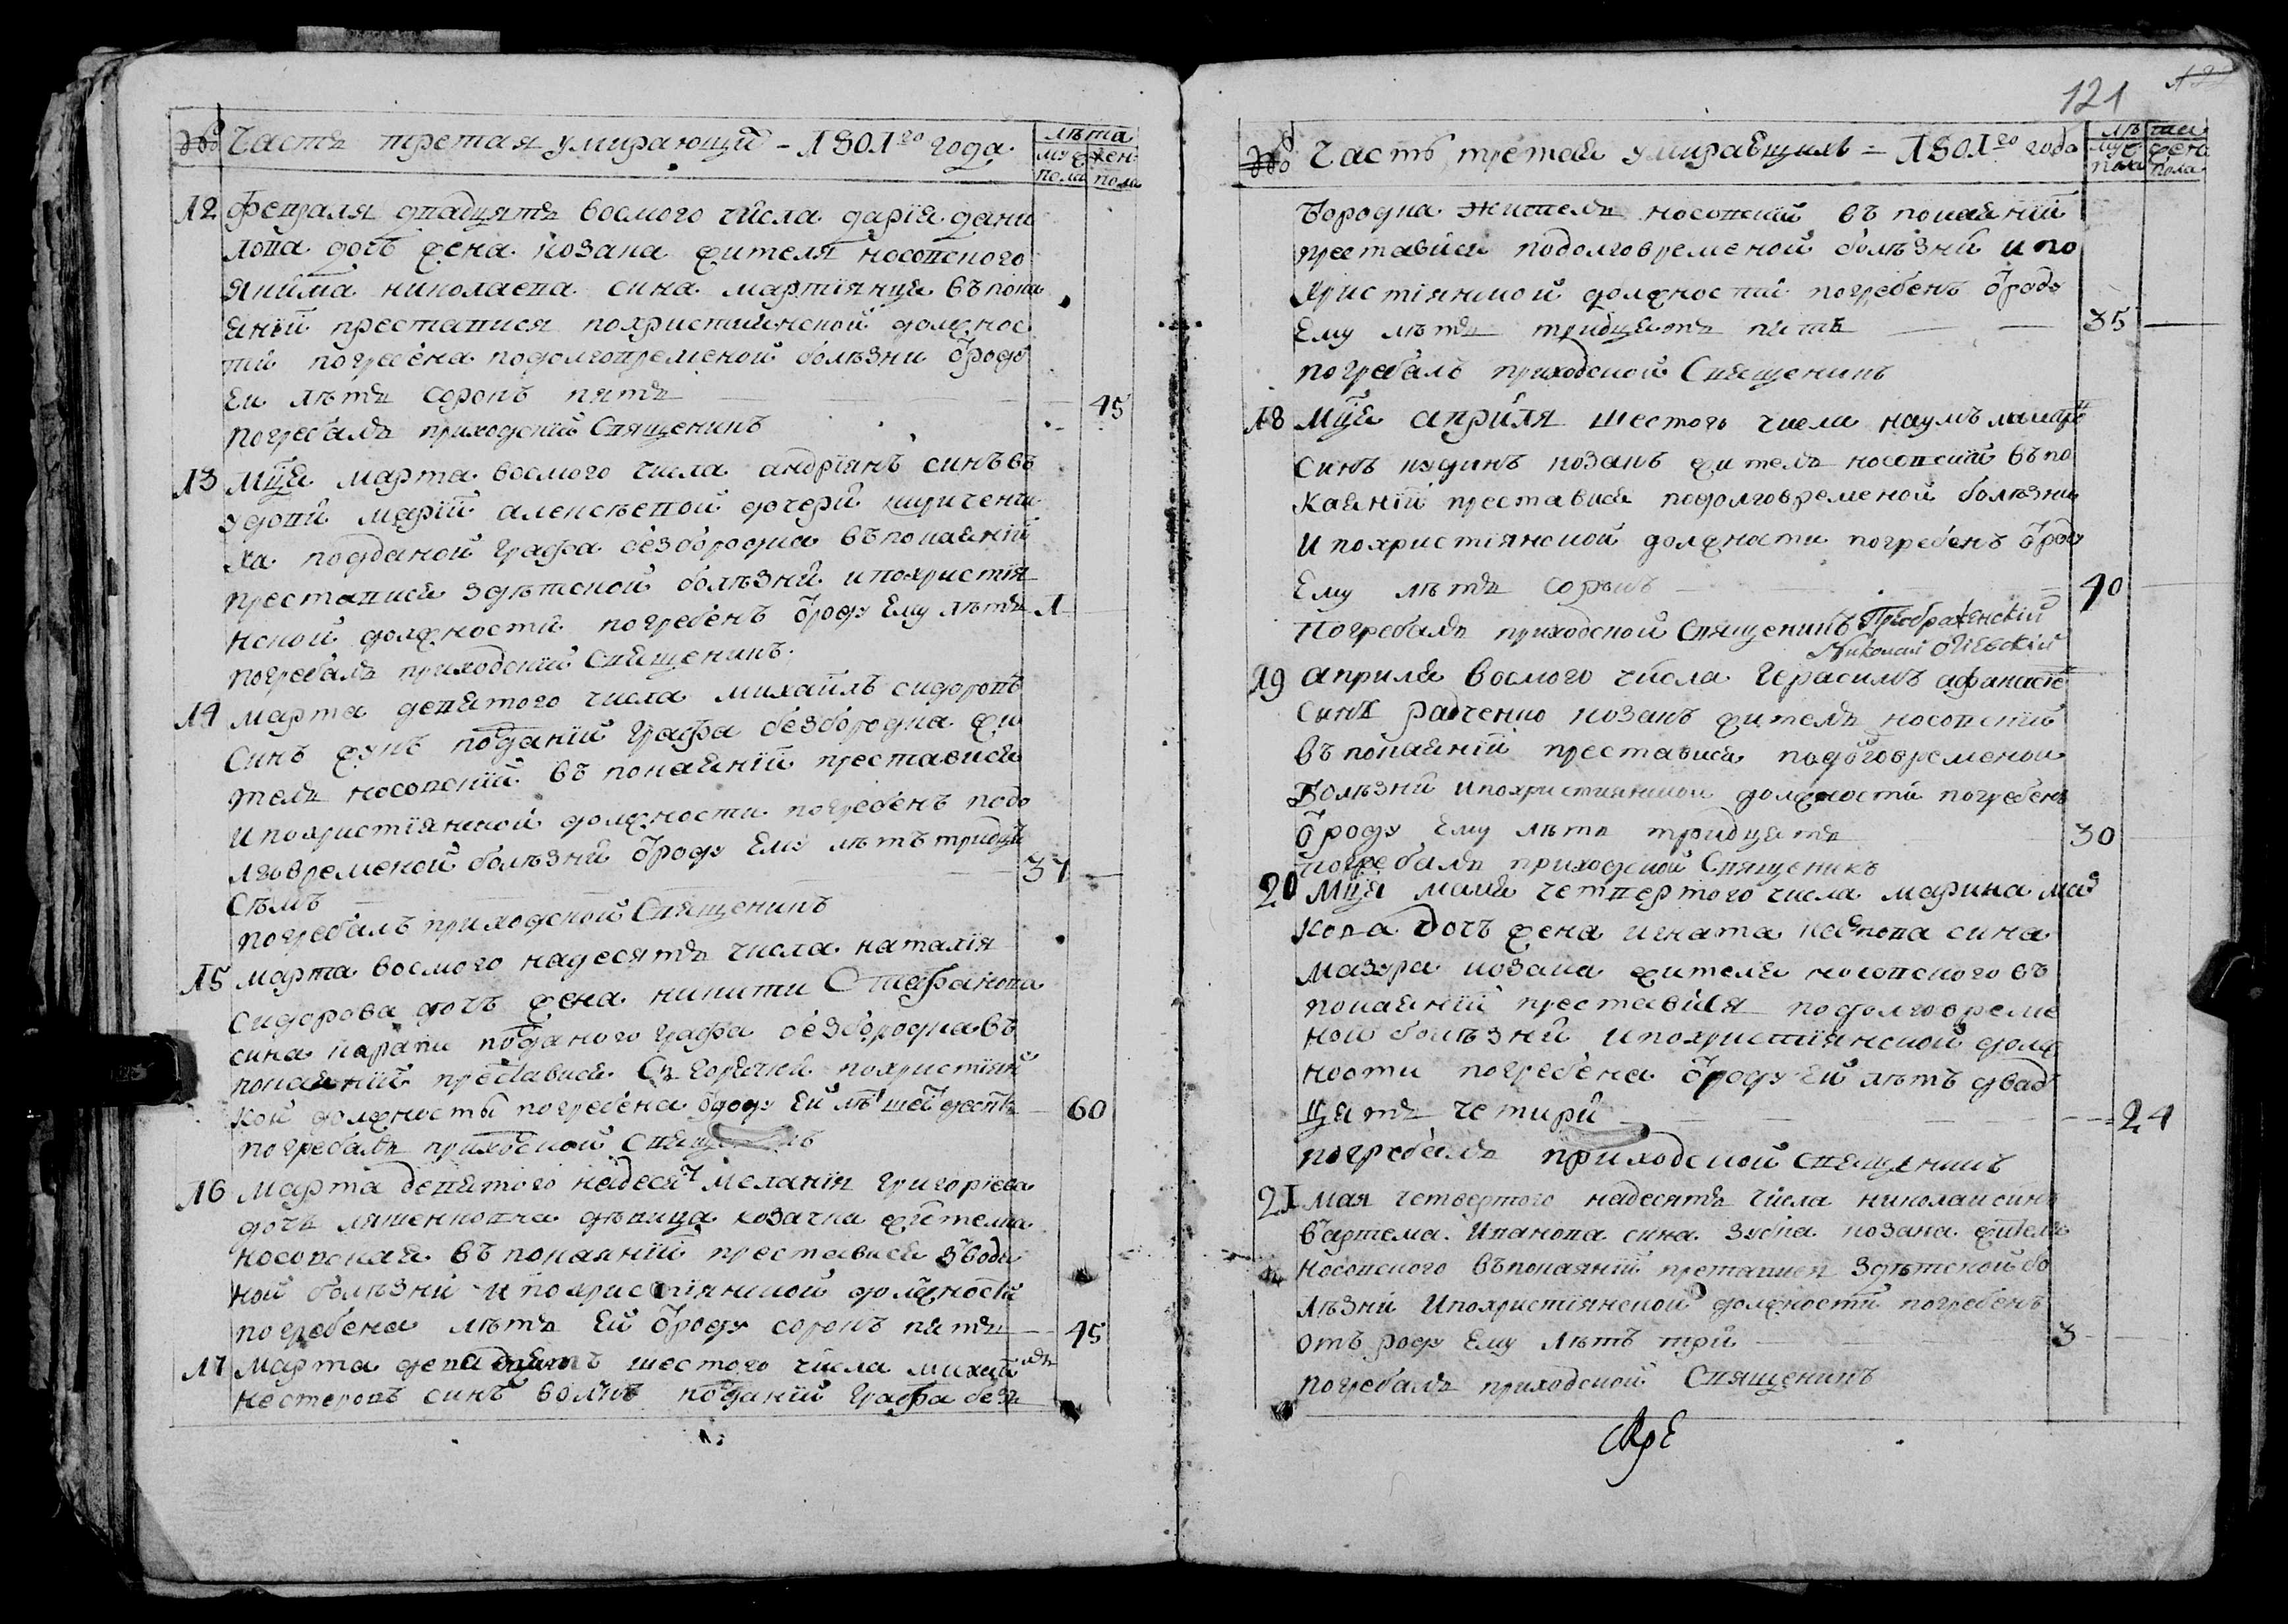 Часть третая умирающий - 1801го года
лѣта
муж пола
жен пола
12 февраля двадцять восмого числа дарїя дани
лова дочъ жена козака жителя носовского
якима николаева сина мартїянця въ пока
янїй преставися похристиянской должнос
тй погребена подолговременой болѣзни ѿроду
еи лѣтъ сорокъ пять 45
погребалъ приходскїй Священикъ
13 Мца марта восмого числа андрїянъ синъ въ
удовй марїй алексѣевой дочерй
ха подданой графа безбородка въ покаянїй
преставися здѣтской болѣзнй и похристїя
нской должностй погребенъ ѿроду Ему лѣтъ 1
погребалъ приходскїй Священикъ
14 марта девятого числа михаилъ сидоровъ
Синъ жукъ подданїй графа безбородка жи
тель носовскїй въ покаянїй преставися
и похристїянской должности погребенъ подо
лговременой болѣзнй ѿроду Ему лѣтъ тридця
Сѣмъ 37
погребалъ приходской Священикъ
15 марта восмого надесять числа наталїя
Сидорова дочъ жена никити Стефанова
сина подданого графа безбородка въ
покаянїй преставися Съ горячкй похристїян
кой должносты погребена ѿроду Ей лѣ шейдесять 60
погребалъ приходской
16 Марта девятого надеся меланїя григорїева
дочъ ляшенковна дѣвица козачка жителка
носовская въ покаянїй преставися зводя
ной болѣзнй и похристїянской должностй
погребена лѣтъ Ей ѿроду сорокъ пять 45
17 Марта двадцять шестого числа михаилъ
нестеровъ синъ подданїй графа безъ
121
Часть третая умиравщихъ = 1801го года
лѣта
муж пола
жен пола
бородка жителъ носовскїй въ покаянїй
преставися подолговременой болѣзнй и по
христїянской должностий погребенъ ѿроду
Ему лѣтъ тридцять пять 35
погребалъ приходской Священикъ
18 Мца апрйля шестого числа наумъ
синъ козакъ житель носовскїй въ по
каянїй преставися подолговременой болѣзни
И похристїянской должности погребенъ ѿроду
Ему лѣтъ сорокъ 40
Погребалъ приходской Священикъ Преображенскїй
Николай
19 априля восмого числа Герасимъ афанасїе
синъ радченко козакъ житель носовскїй
въ покаянїй преставися подоговременои
Болѣзнй и похристиянскои должностй погребенъ
ѿроду Ему лѣтъ тридцять 30
погребалъ приходской Священикъ
20 Мця маия четвертого числа марина
кова дочъ жена игната сина
мазура козака жителя носовского въ
покаянїй преставйся подолговреме
ной болѣзнй и похристиянской долж
ности погребена ѿроду Ей лѣтъ двад
цять четирй 24
погребалъ приходской священикъ
21 мая четвертого надесять числа николаи синъ
въ артема Иванова сина зубка козака жителя
Носовского въ покаянїй преставися здѣтской бо
лѣзнй И похристїянской должностй погребенъ
отъ роду Ему лѣтъ трй 3
погребалъ приходской Священикъ